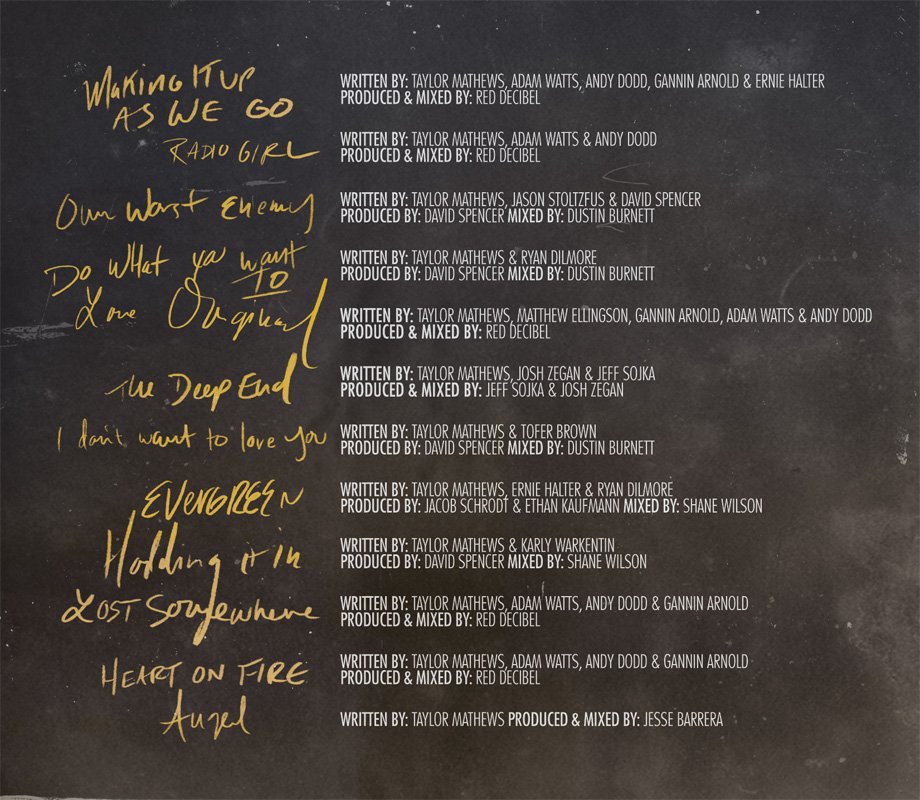 Making It up
As We Go
WRITTEN BY: TAYLOR MATHEWS, ADAM WATTS, ANDY DODD, GANNIN ARNOLD & ERNIE HALTER
PRODUCED & MIXED BY: RED DECIBEL
RADIO GIRL
WRITTEN BY: TAYLOR MATHEWS, ADAM WATTS & ANDY DODD
PRODUCED & MIXED BY: RED DECIBEL
Our Worst Enemy
WRITTEN BY: TAYLOR MATHEWS, JASON STOLTZFUS & DAVID SPENCER
PRODUCED BY: DAVID SPENCER MIXED BY: DUSTIN BURNETT
Do What you want
TO
WRITTEN BY: TAYLOR MATHEWS & RYAN DILMORE
PRODUCED BY: DAVID SPENCER MIXED BY: DUSTIN BURNETT
Love Original
WRITTEN BY: TAYLOR MATHEWS, MATTHEW ELLINGSON, GANNIN ARNOLD, ADAM WATTS & ANDY DODD
PRODUCED & MIXED BY: RED DECIBEL
The Deep End
WRITTEN BY: TAYLOR MATHEWS, JOSH ZEGAN & JEFF SOJKA
PRODUCED & MIXED BY: JEFF SOJKA & JOSH ZEGAN
I don't want to love you
WRITTEN BY: TAYLOR MATHEWS & TOFER BROWN
PRODUCED BY: DAVID SPENCER MIXED BY: DUSTIN BURNETT
EVERGREEN
WRITTEN BY: TAYLOR MATHEWS, ERNIE HALTER & RYAN DILMORE
PRODUCED BY: JACOB SCHRODT & ETHAN KAUFMANN MIXED BY: SHANE WILSON
Holding it in
WRITTEN BY: TAYLOR MATHEWS & KARLY WARKENTIN
PRODUCED BY: DAVID SPENCER MIXED BY: SHANE WILSON
LOST Somewhere
WRITTEN BY: TAYLOR MATHEWS, ADAM WATTS, ANDY DODD & GANNIN ARNOLD
PRODUCED & MIXED BY: RED DECIBEL
HEART ON FIRE
WRITTEN BY: TAYLOR MATHEWS, ADAM WATTS, ANDY DODD & GANNIN ARNOLD
PRODUCED & MIXED BY: RED DECIBEL
Angel
WRITTEN BY: TAYLOR MATHEWS PRODUCED & MIXED BY: JESSE BARRERA